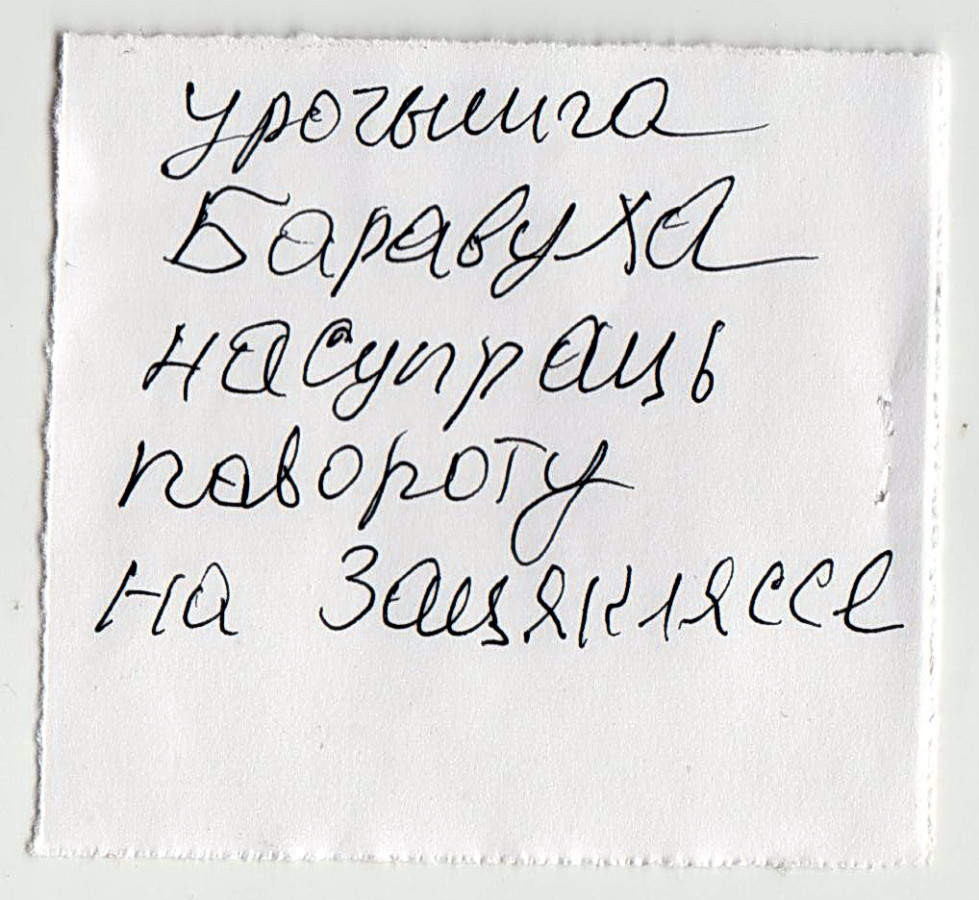 урочышча
Баравуха
насупраць
павороту
на Зацякляссе